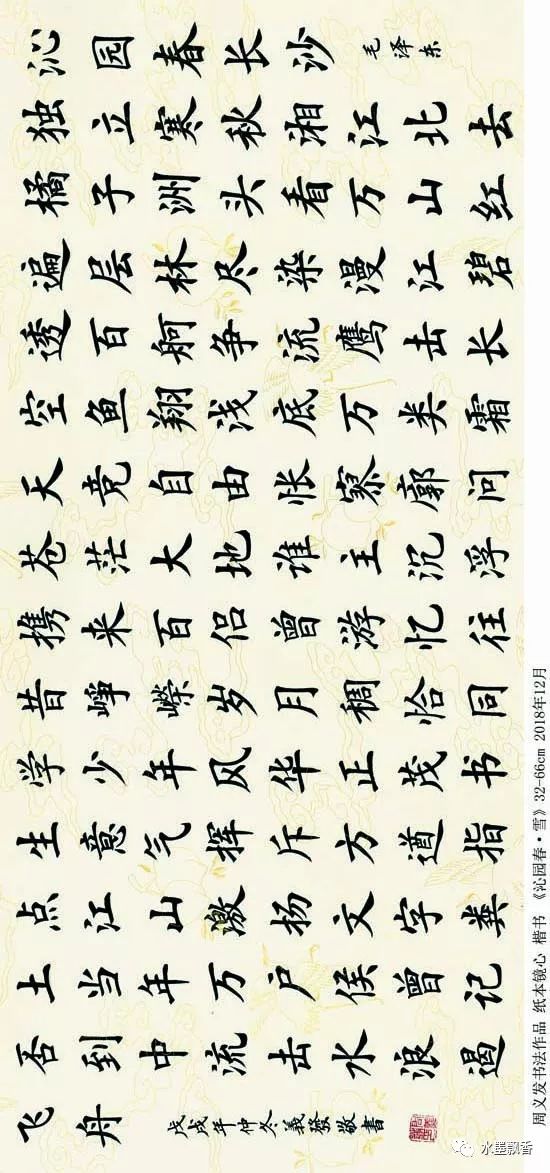 沁园春长沙 毛泽东
独立寒秋湘江北去
橘子洲头看万山红
遍层林尽染漫江碧
透百舸争流鹰击长
空鱼翔浅底万类霜
天竞自由怅寥廓问
苍茫大地谁主沉浮
携来百侣曾游忆往
昔峥嵘岁月稠恰同
学少年风华正茂书
生意气挥斥方遒指
点江山激扬文字粪
土当年万户侯曾记
否到中流击水浪遏
飞舟 戊戌年仲冬義發敬書
周义发书法作品 纸本镜心 楷书 《沁园春·雪》32-66cm 2018年12月
水墨飘香